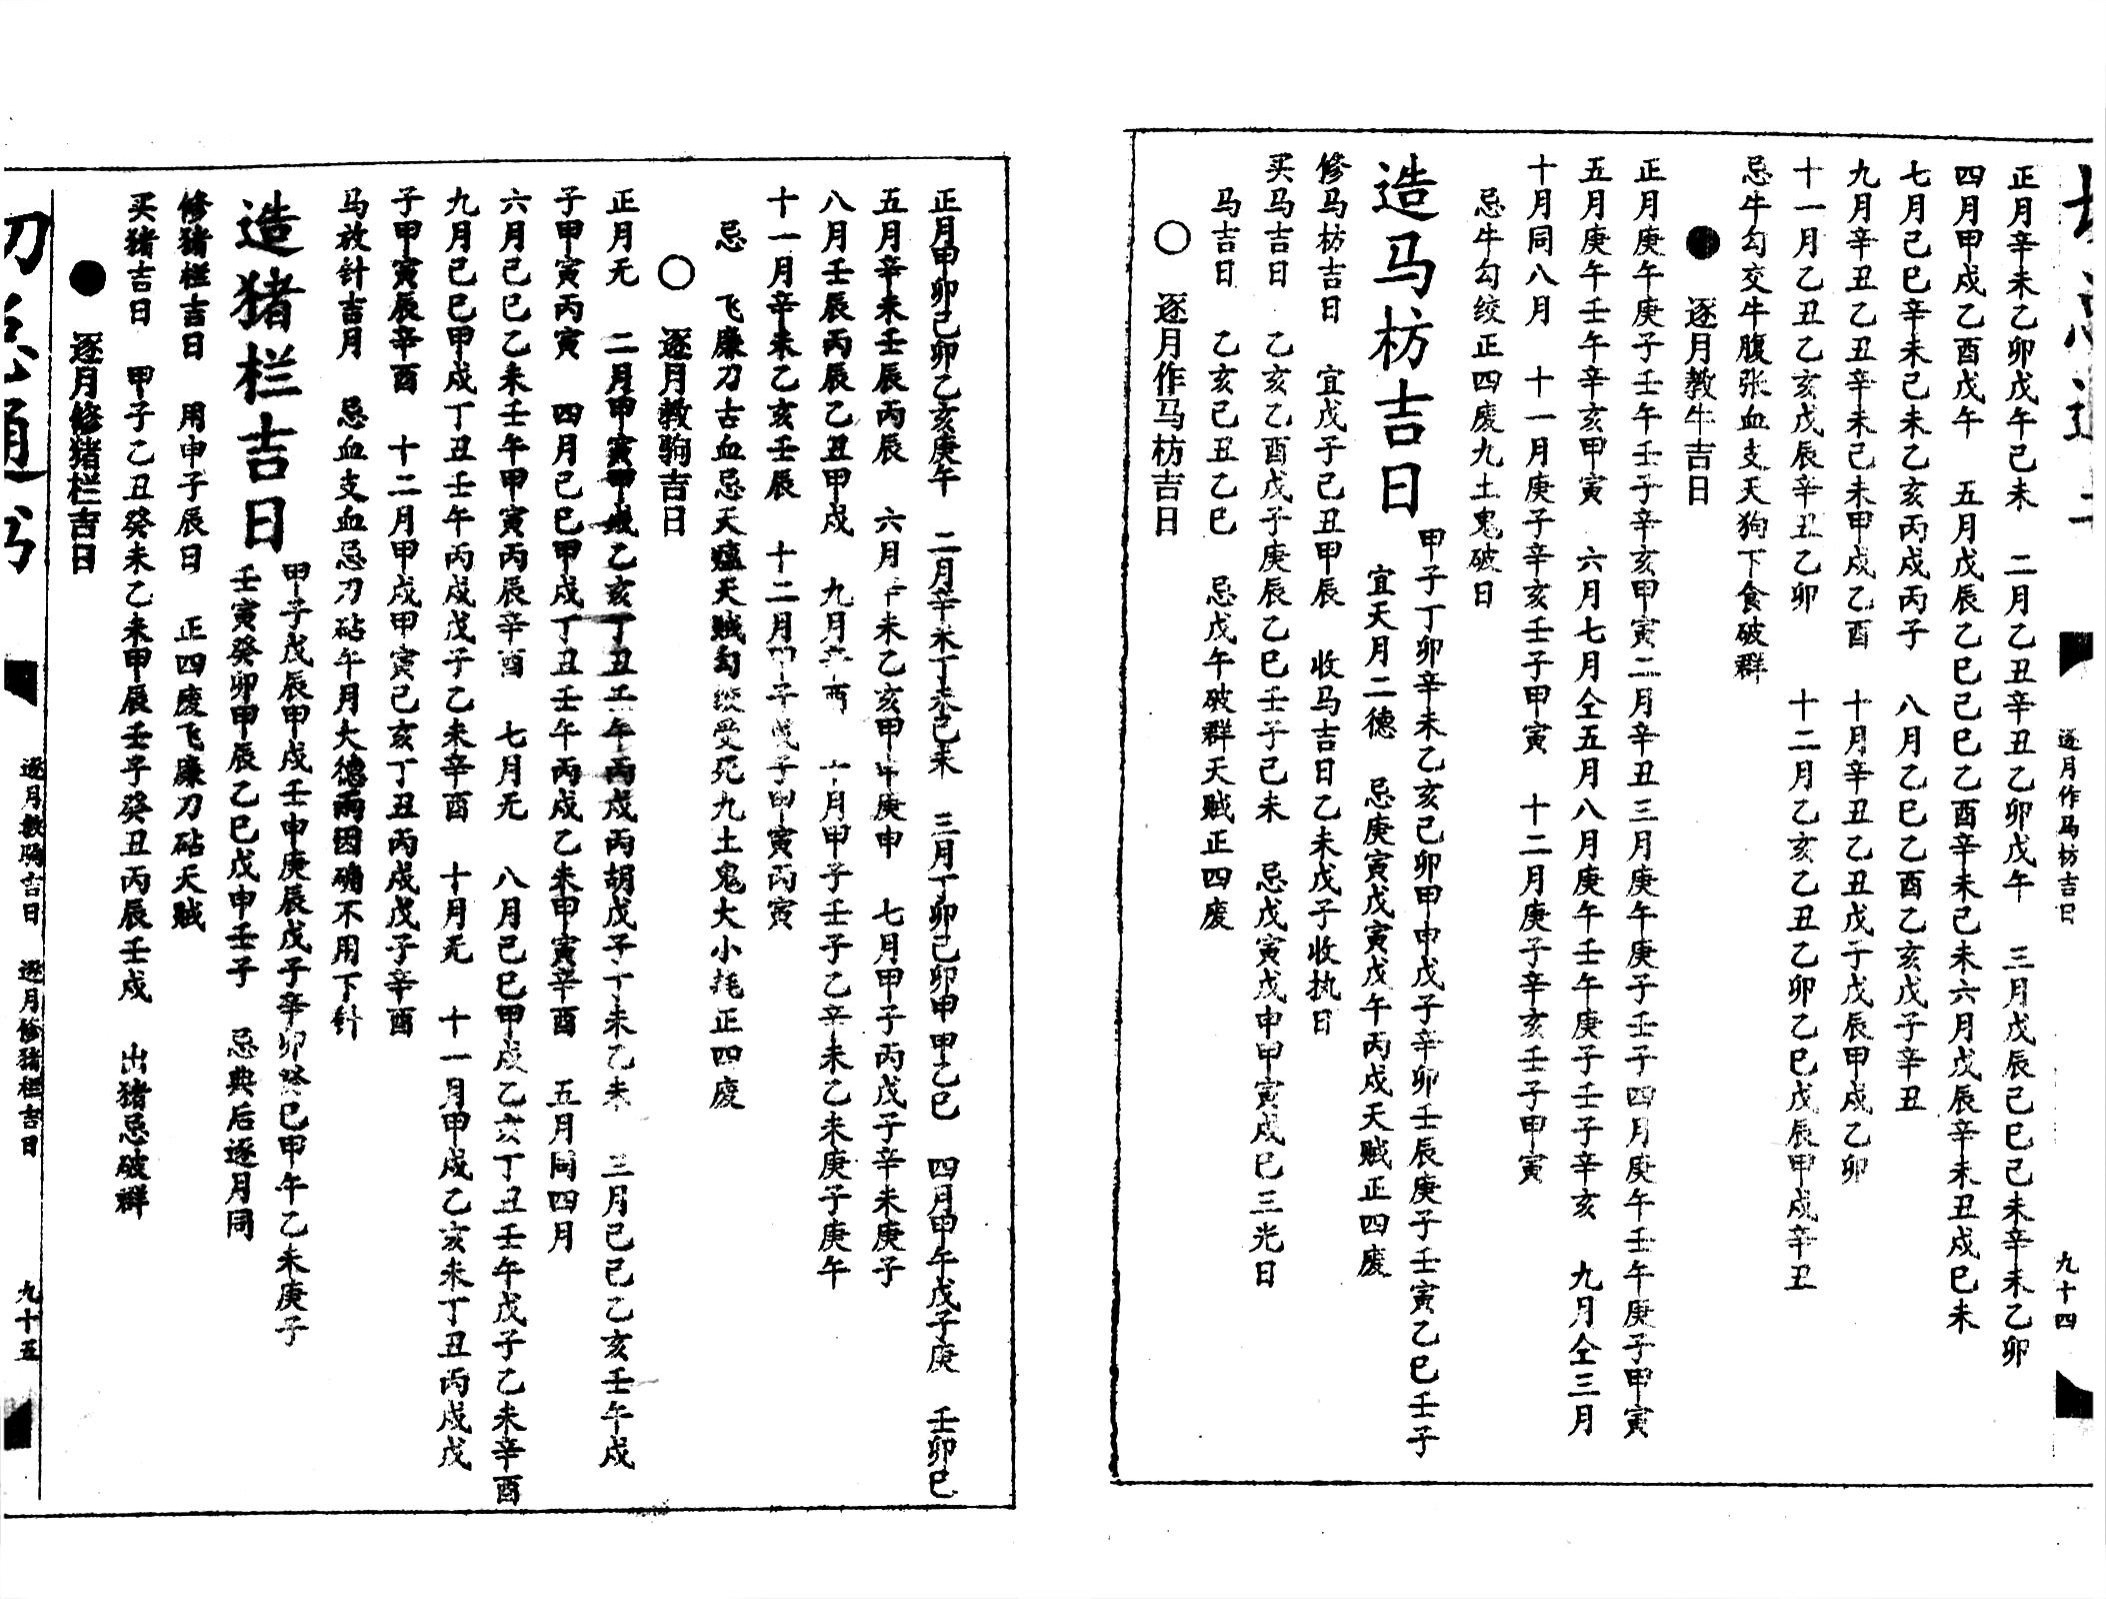 逐月作马枋吉日
九十四
正月辛未乙卯戊午己未 二月乙丑辛丑乙卯戊午 三月戊辰己巳己未辛未乙卯
四月甲戍乙酉戊午 五月戊辰乙巳己巳乙酉辛未己未六月戊辰辛未丑戍巳未
七月己巳辛未己未乙亥丙戍丙子 八月乙巳乙酉乙亥戊子辛丑
九月辛丑乙丑辛未己未甲戍乙酉 十月辛丑乙丑戊子戊辰甲戍乙卯
十一月乙丑乙亥戊辰辛丑乙卯 十二月乙亥乙丑乙卯乙巳戊辰甲戍辛丑
忌牛勾交牛腹张血支天狗下食破群
● 逐月教牛吉日
正月庚午庚子壬午壬子辛亥甲寅二月辛丑三月庚午庚子壬子四月庚午壬午庚子甲寅
五月庚午壬午辛亥甲寅 六月七月仝五月八月庚午壬午庚子壬子辛亥 九月仝三月
十月同八月 十一月庚子辛亥壬子甲寅 十二月庚子辛亥壬子甲寅
忌牛勾绞正四废九土鬼破日
造马枋吉日
甲子丁卯辛未乙亥己卯甲申戊子辛卯壬辰庚子壬寅乙巳壬子
宜天月二德 忌庚寅戊寅戊午丙戍天贼正四废
修马枋吉日 宜戊子己丑甲辰 收马吉日乙未戊子收执日
买马吉日 乙亥乙酉戊子庚辰乙巳壬子己未 忌戊寅戊申甲寅戍巳三光日
马吉日 乙亥己丑乙巳 忌戊午破群天贼正四废
○ 逐月作马枋吉日
正月甲卯己卯乙亥庚午 二月辛未丁未己未 三月丁卯己卯甲甲乙巳 四月甲午戊子庚 壬卯巳
五月辛未壬辰丙辰 六月辛未乙亥甲申庚申 七月甲子丙戊子辛未庚子
八月壬辰丙辰乙丑甲戍 九月辛酉 十月甲子壬子乙辛未乙未庚子庚午
十一月辛未乙亥壬辰 十二月甲子戊子甲寅丙寅
忌 飞廉刀古血忌天瘟天贼勾绞受死九土鬼大小耗正四废
○ 逐月教驹吉日
正月无 二月甲寅甲戍乙亥丁丑壬午丙戍丙胡戊子丁未乙未 三月己巳乙亥壬午戍
子甲寅丙寅 四月己巳甲戍丁丑壬午丙戍乙未甲寅辛酉 五月同四月
六月己巳乙未壬午甲寅丙辰辛酉 七月无 八月己巳甲戍乙亥丁丑壬午戊子乙未辛酉
九月己巳甲戍丁丑壬午丙戍戊子乙未辛酉 十月无 十一月甲戍乙亥未丁丑丙戍戊
子甲寅辰辛酉 十二月甲戍甲寅己亥丁丑丙戍戊子辛酉
马放针吉月 忌血支血忌刀砧午月大德雨因确不用下针
造猪栏吉日
甲子戊辰甲戍壬申庚辰戊子辛卯癸巳甲午乙未庚子
壬寅癸卯甲辰乙巳戊申壬子 忌典后逐月同
修猪栏吉日 用申子辰日 正四废飞廉刀砧天贼
买猪吉日 甲子乙丑癸未乙未甲辰壬子癸丑丙辰壬戍 出猪忌破群
● 逐月修猪栏吉日
逐月教驹吉日 逐月修猪栏吉日
九十五